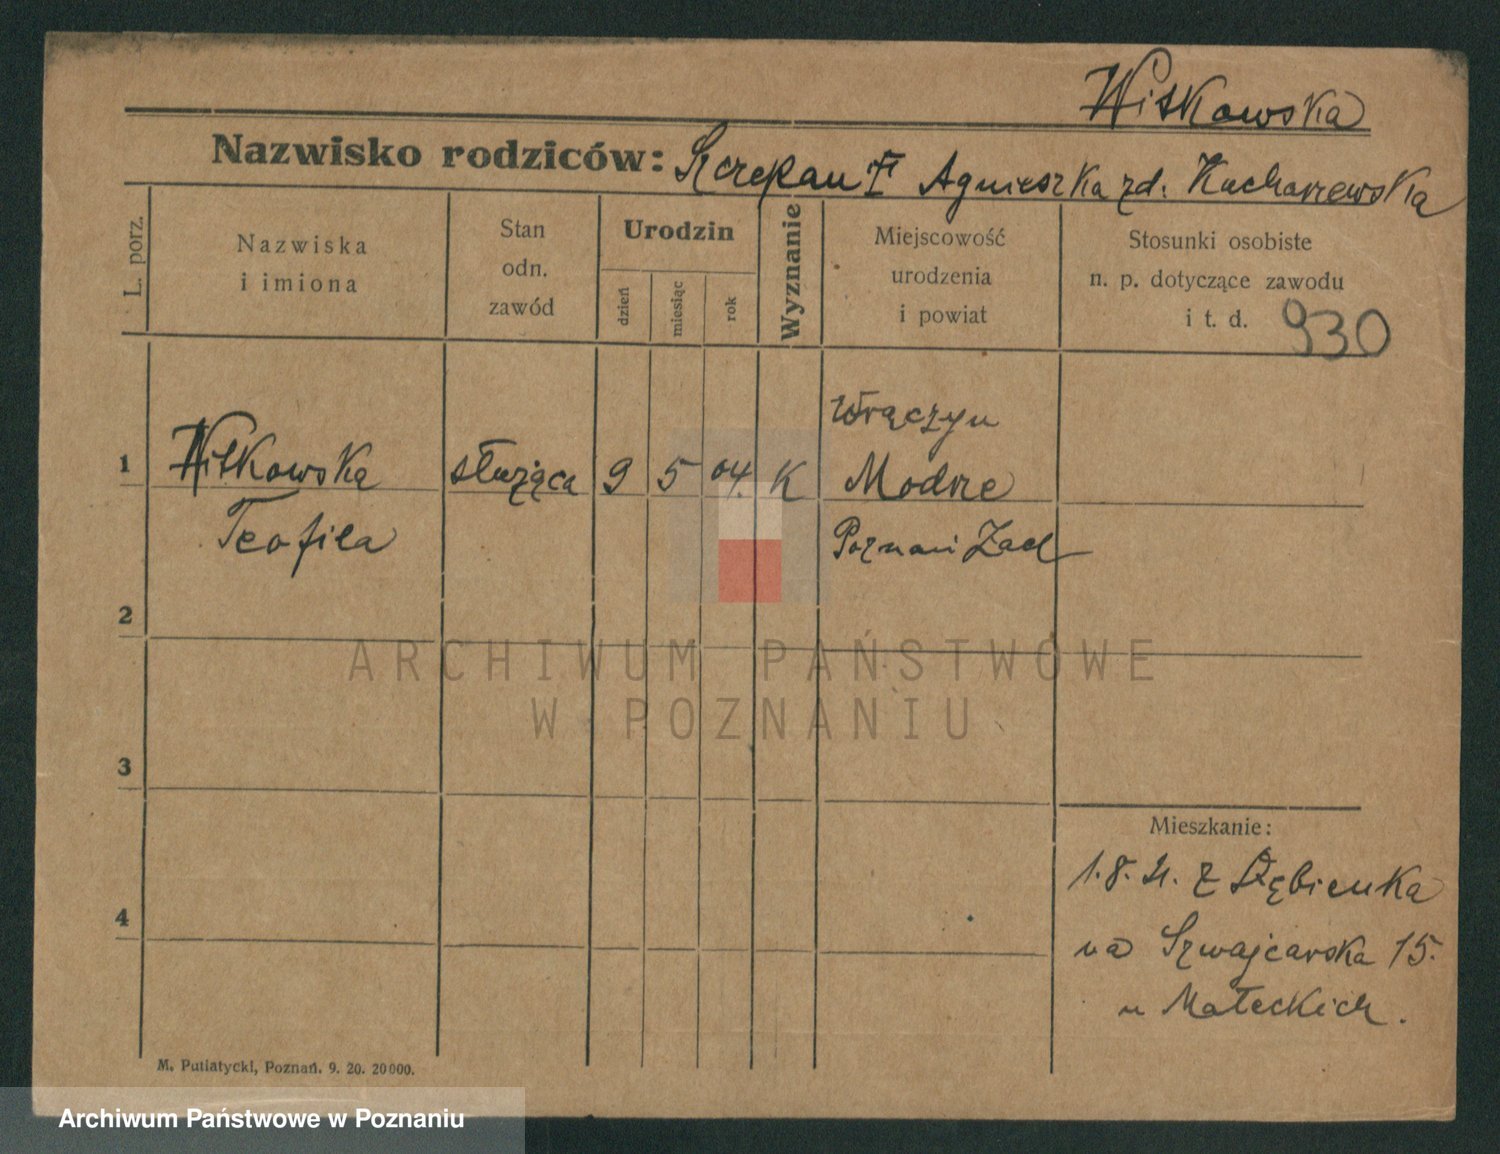 Witkowska
Nazwisko rodziców: Szczepan † Agnieszka zd. Kucharzewska
L. porz.
Nazwiska
i imiona
Stan
odn.
zawód
Urodzin
dzień
miesiąc
rok
Wyznanie
Miejscowość
urodzenia
i powiat
Stosunki osobiste
n. p. dotyczące zawodu
i t. d. 930
Wrączyn
1 Witkowska służąca 9 5 04. K Modrze
Teofila Poznań Zach
2
3
4
Mieszkanie:
1.8.21. z Dębienka
na Szwajcarska 15.
u Małeckich.
M. Putiatycki, Poznań. 9. 20. 20000.
ARCHIWUM PAŃSTWOWE
W POZNANIU
Archiwum Państwowe w Poznaniu